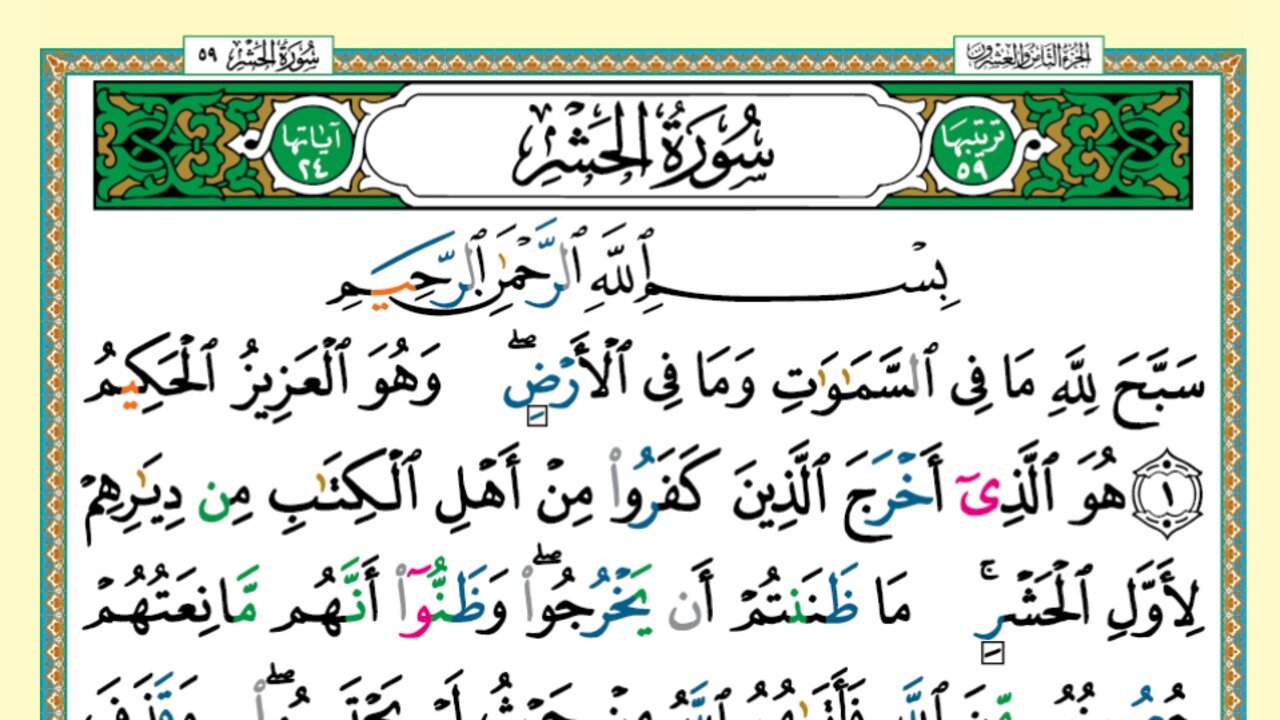 الجزء الثامن والعشرون
سورة الحشر ٥٩
ترتيبها ٥٩
سُورَةُ الحَشْرِ
آياتها ٢٤
بِسْمِ ٱللَّهِ ٱلرَّحْمَٰنِ ٱلرَّحِيمِ
سَبَّحَ لِلَّهِ مَا فِى ٱلسَّمَٰوَٰتِ وَمَا فِى ٱلْأَرْضِ ۖ وَهُوَ ٱلْعَزِيزُ ٱلْحَكِيمُ
١ هُوَ ٱلَّذِىٓ أَخْرَجَ ٱلَّذِينَ كَفَرُوا۟ مِنْ أَهْلِ ٱلْكِتَٰبِ مِن دِيَٰرِهِمْ
لِأَوَّلِ ٱلْحَشْرِ ۚ مَا ظَنَنتُمْ أَن يَخْرُجُوا۟ ۖ وَظَنُّوٓا۟ أَنَّهُم مَّانِعَتُهُمْ
حُصُونُهُم مِّنَ ٱللَّهِ فَأَتَىٰهُمُ ٱللَّهُ مِنْ حَيْثُ لَمْ يَحْتَسِبُوا۟ ۖ وَقَذَفَ